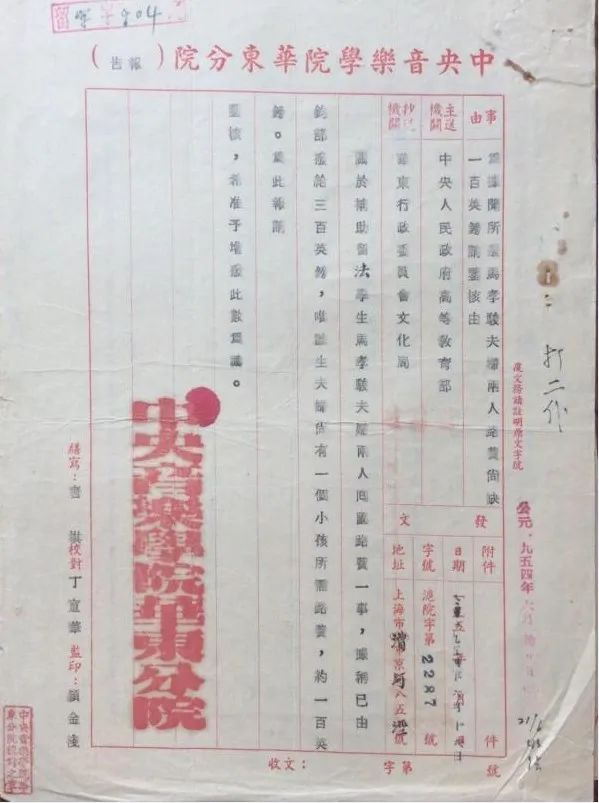 中央音樂學院華東分院（報告）
事由
為據聞所屬馬孝駿夫婦兩人路費尚缺
一百英鎊請鑒核由
主送機關
中央人民政府高等教育部
抄送機關
華東行政委員會文化局
發文
附件 件
日期
字號 滬院字第2287號
地址 上海市
關於補助留法學生馬孝駿夫婦兩人回國路費一事，據稱已由
鈞部滙給三百英鎊，唯該生夫婦尚有一個小孩所需路費，約一百英
鎊。為此報請
鑒核，希准予增滙此數為禱。
中央音樂學院華東分院
繕寫： 校對 丁宣華 監印：顧金
復文務請註明原文字號
打二份
公元一九五四年
收文： 字第 號